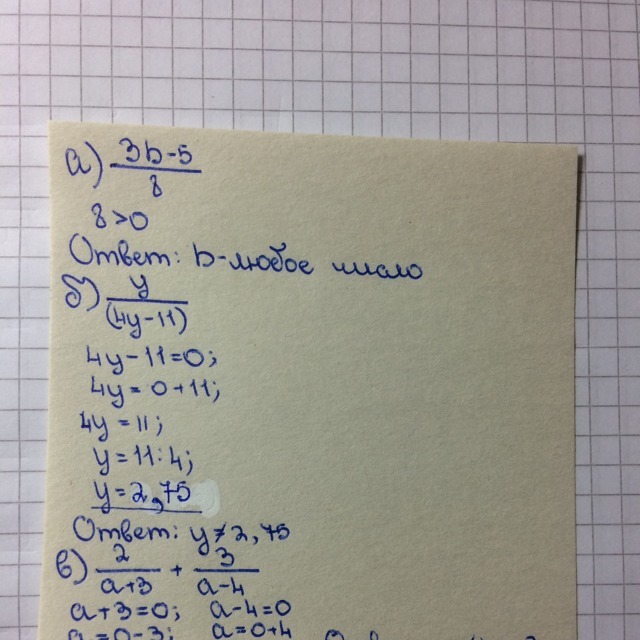 а) 3b-5
8
8>0
Ответ: b-любое число
б) y
(4y-11)
4y-11=0;
4y=0+11;
4y=11;
y=11:4;
y=2,75
Ответ: y≠2,75
в) 2/(a+3) + 3/(a-4)
a+3=0; a-4=0
a=0-3; a=0+4